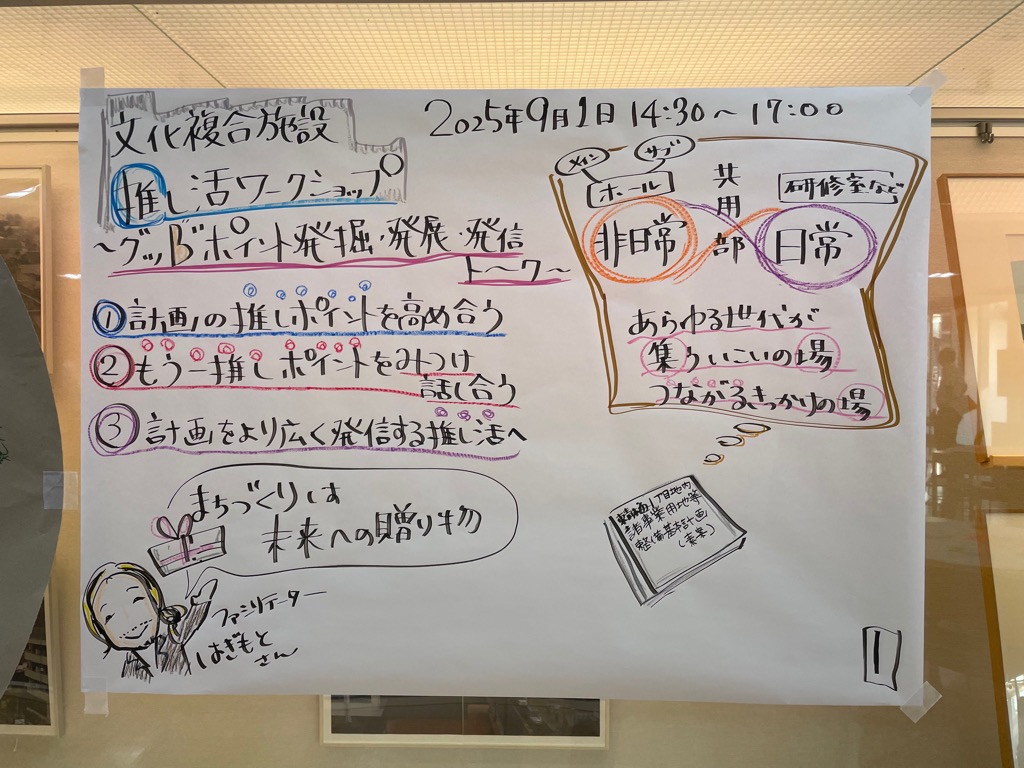 文化複合施設
推し活ワークショップ
〜グッBポイント発掘・発展・発信
トーク〜
2025年9月1日 14:30〜17:00
①計画の推しポイントを高め合う
②もう一推しポイントをみつけ
話し合う
③計画をより広く発信する推し活へ
まちづくりは
未来への贈り物
ファシリテーター
はぎもと
さん
メイン
サブ
ホール
共用部
研修室など
非日常
日常
あらゆる世代が
集ういこいの場
つながるきっかけの場
丁目地内
事業用地等
整備基本計画
(素案)
1